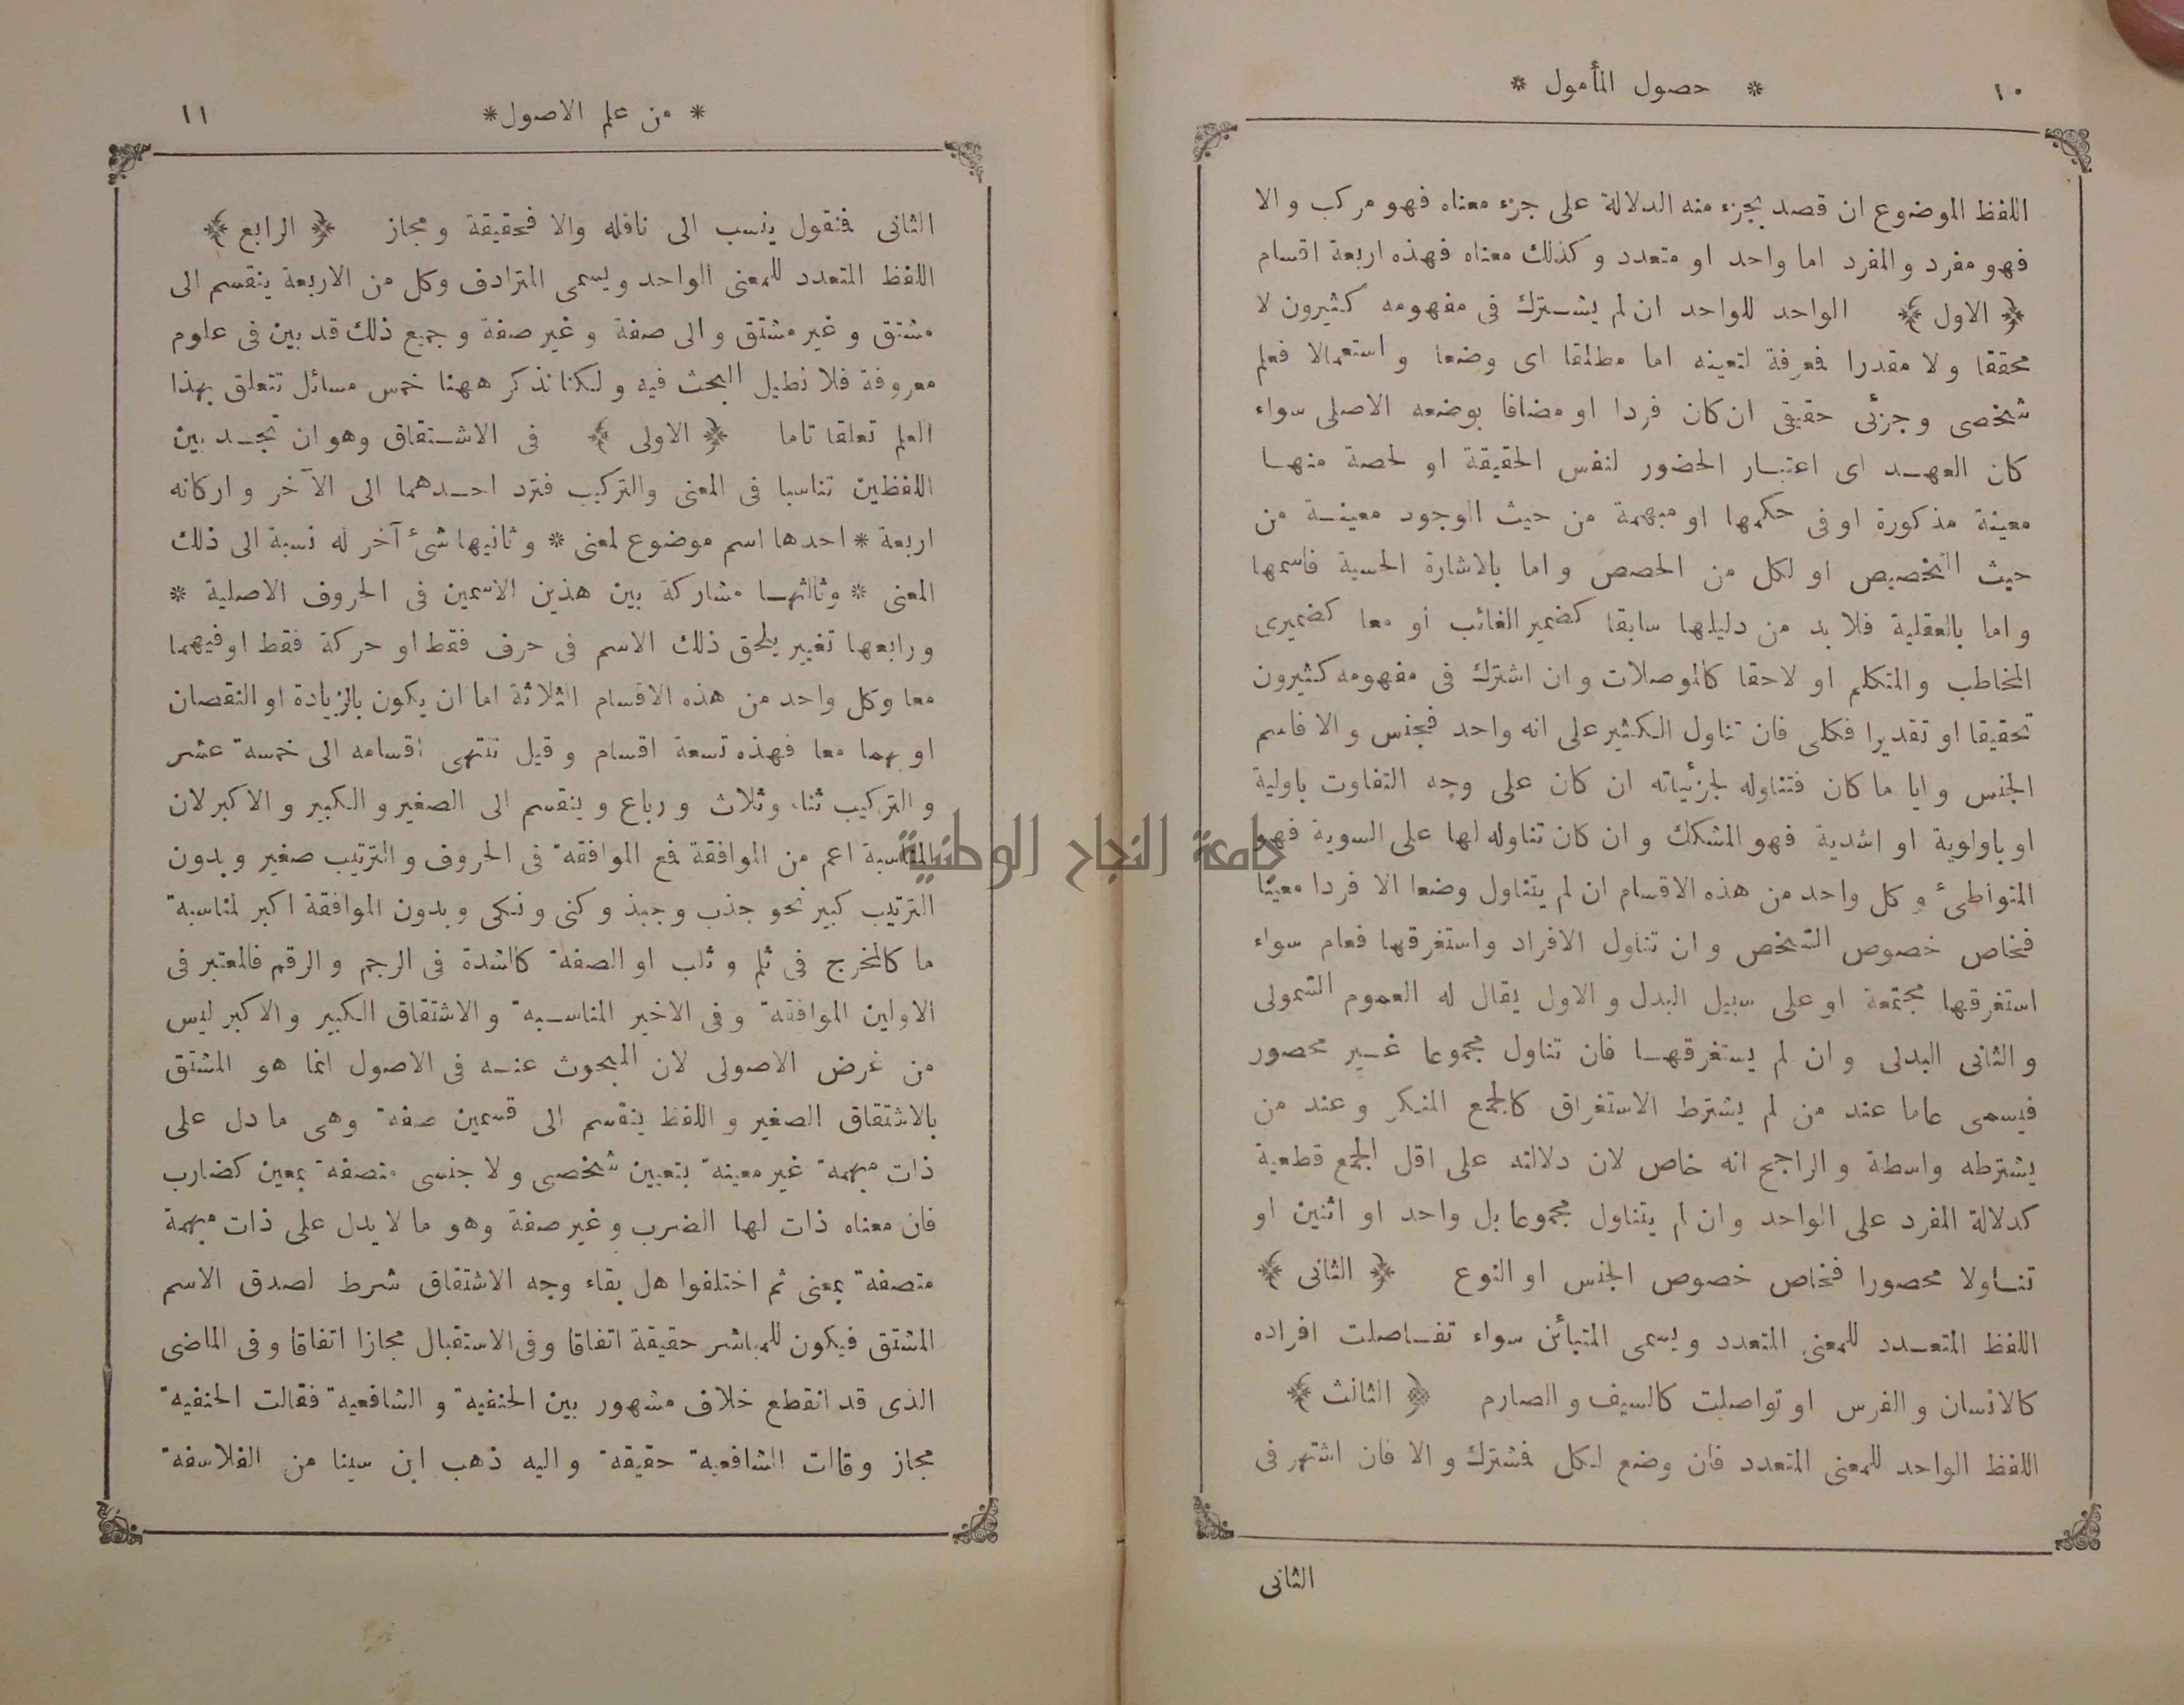 ١٠ * حصول المأمول *
اللفظ الموضوع ان قصد بجزء منه الدلالة على جزء معناه فهو مركب والا
فهو مفرد والمفرد اما واحد او متعدد وكذلك معناه فهذه اربعة اقسام
﴿ الاول ﴾ الواحد للواحد ان لم يشترك فى مفهومه كثيرون لا
محققا ولا مقدرا فمعرفة لتعينه اما مطلقا اى وضعا واستعمالا فعلم
شخصى وجزئى حقيقى ان كان فردا او مضافا بوضعه الاصلى سواء
كان العهد اى اعتبار الحضور لنفس الحقيقة او لحصة منها
معينة مذكورة او فى حكمها او مبهمة من حيث الوجود معينة من
حيث التخصيص او لكل من الحصص واما بالاشارة الحسية فاسمها
واما بالعقلية فلا بد من دليلها سابقا كضمير الغائب او معا كضميرى
المخاطب والمتكلم او لاحقا كالموصلات وان اشترك فى مفهومه كثيرون
تحقيقا او تقديرا فكلى فان تناول الكثير على انه واحد فجنس والا فاسم
الجنس وايا ما كان فتناوله لجزئياته ان كان على وجه التفاوت باولية
او باولوية او اشدية فهو المشكك وان كان تناوله لها على السوية فهو
المتواطئ وكل واحد من هذه الاقسام ان لم يتناول وضعا الا فردا معينا
فخاص خصوص الشخص وان تناول الافراد واستغرقها فعام سواء
استغرقها مجتمعة او على سبيل البدل والاول يقال له العموم الشمولى
والثانى البدلى وان لم يستغرقها فان تناول مجموعا غير محصور
فيسمى عاما عند من لم يشترط الاستغراق كالجمع المنكر وعند من
يشترطه واسطة والراجح انه خاص لان دلالته على اقل الجمع قطعية
كدلالة المفرد على الواحد وان لم يتناول مجموعا بل واحد او اثنين او
تناولا محصورا فخاص خصوص الجنس او النوع ﴿ الثانى ﴾
اللفظ المتعدد للمعنى المتعدد ويسمى المتبائن سواء تفاصلت افراده
كالانسان والفرس او تواصلت كالسيف والصارم ﴿ الثالث ﴾
اللفظ الواحد للمعنى المتعدد فان وضع لكل فمشترك والا فان اشتهر فى
الثانى
* من علم الاصول * ١١
الثانى فنقول ينسب الى ناقله والا فحقيقة ومجاز ﴿ الرابع ﴾
اللفظ المتعدد للمعنى الواحد ويسمى المترادف وكل من الاربعة ينقسم الى
مشتق وغير مشتق والى صفة وغير صفة وجميع ذلك قد بين فى علوم
معروفة فلا نطيل البحث فيه ولكنا نذكر ههنا خمس مسائل تتعلق بهذا
العلم تعلقا تاما ﴿ الاولى ﴾ فى الاشتقاق وهو ان تجد بين
اللفظين تناسبا فى المعنى والتركيب فترد احدهما الى الآخر واركانه
اربعة * احدها اسم موضوع لمعنى * وثانيها شئ آخر له نسبة الى ذلك
المعنى * وثالثها مشاركة بين هذين الاسمين فى الحروف الاصلية *
ورابعها تغيير يلحق ذلك الاسم فى حرف فقط او حركة فقط او فيهما
معا وكل واحد من هذه الاقسام الثلاثة اما ان يكون بالزيادة او النقصان
او بهما معا فهذه تسعة اقسام وقيل تنتهى اقسامه الى خمسة عشر
والتركيب ثناء وثلاث ورباع وينقسم الى الصغير والكبير والاكبر لان
المناسبة اعم من الموافقة فمع الموافقة فى الحروف والترتيب صغير وبدون
الترتيب كبير نحو جذب وجبذ وكنى ونكى وبدون الموافقة اكبر لمناسبة
ما كالمخرج فى ثلم وثلب او الصفة كالشدة فى الرجم والرقم فالمعتبر فى
الاولين الموافقة وفى الاخير المناسبة والاشتقاق الكبير والاكبر ليس
من غرض الاصولى لان المبحوث عنه فى الاصول انما هو المشتق
بالاشتقاق الصغير واللفظ ينقسم الى قسمين صفة وهى ما دل على
ذات مبهمة غير معينة بتعيين شخصى ولا جنسى متصفة بمعين كضارب
فان معناه ذات لها الضرب وغير صفة وهو ما لا يدل على ذات مبهمة
متصفة بمعنى ثم اختلفوا هل بقاء وجه الاشتقاق شرط لصدق الاسم
المشتق فيكون للمباشر حقيقة اتفاقا وفى الاستقبال مجازا اتفاقا وفى الماضى
الذى قد انقطع خلاف مشهور بين الحنفية والشافعية فقالت الحنفية
مجاز وقالت الشافعية حقيقة واليه ذهب ابن سينا من الفلاسفة
جامعة النجاح الوطنية